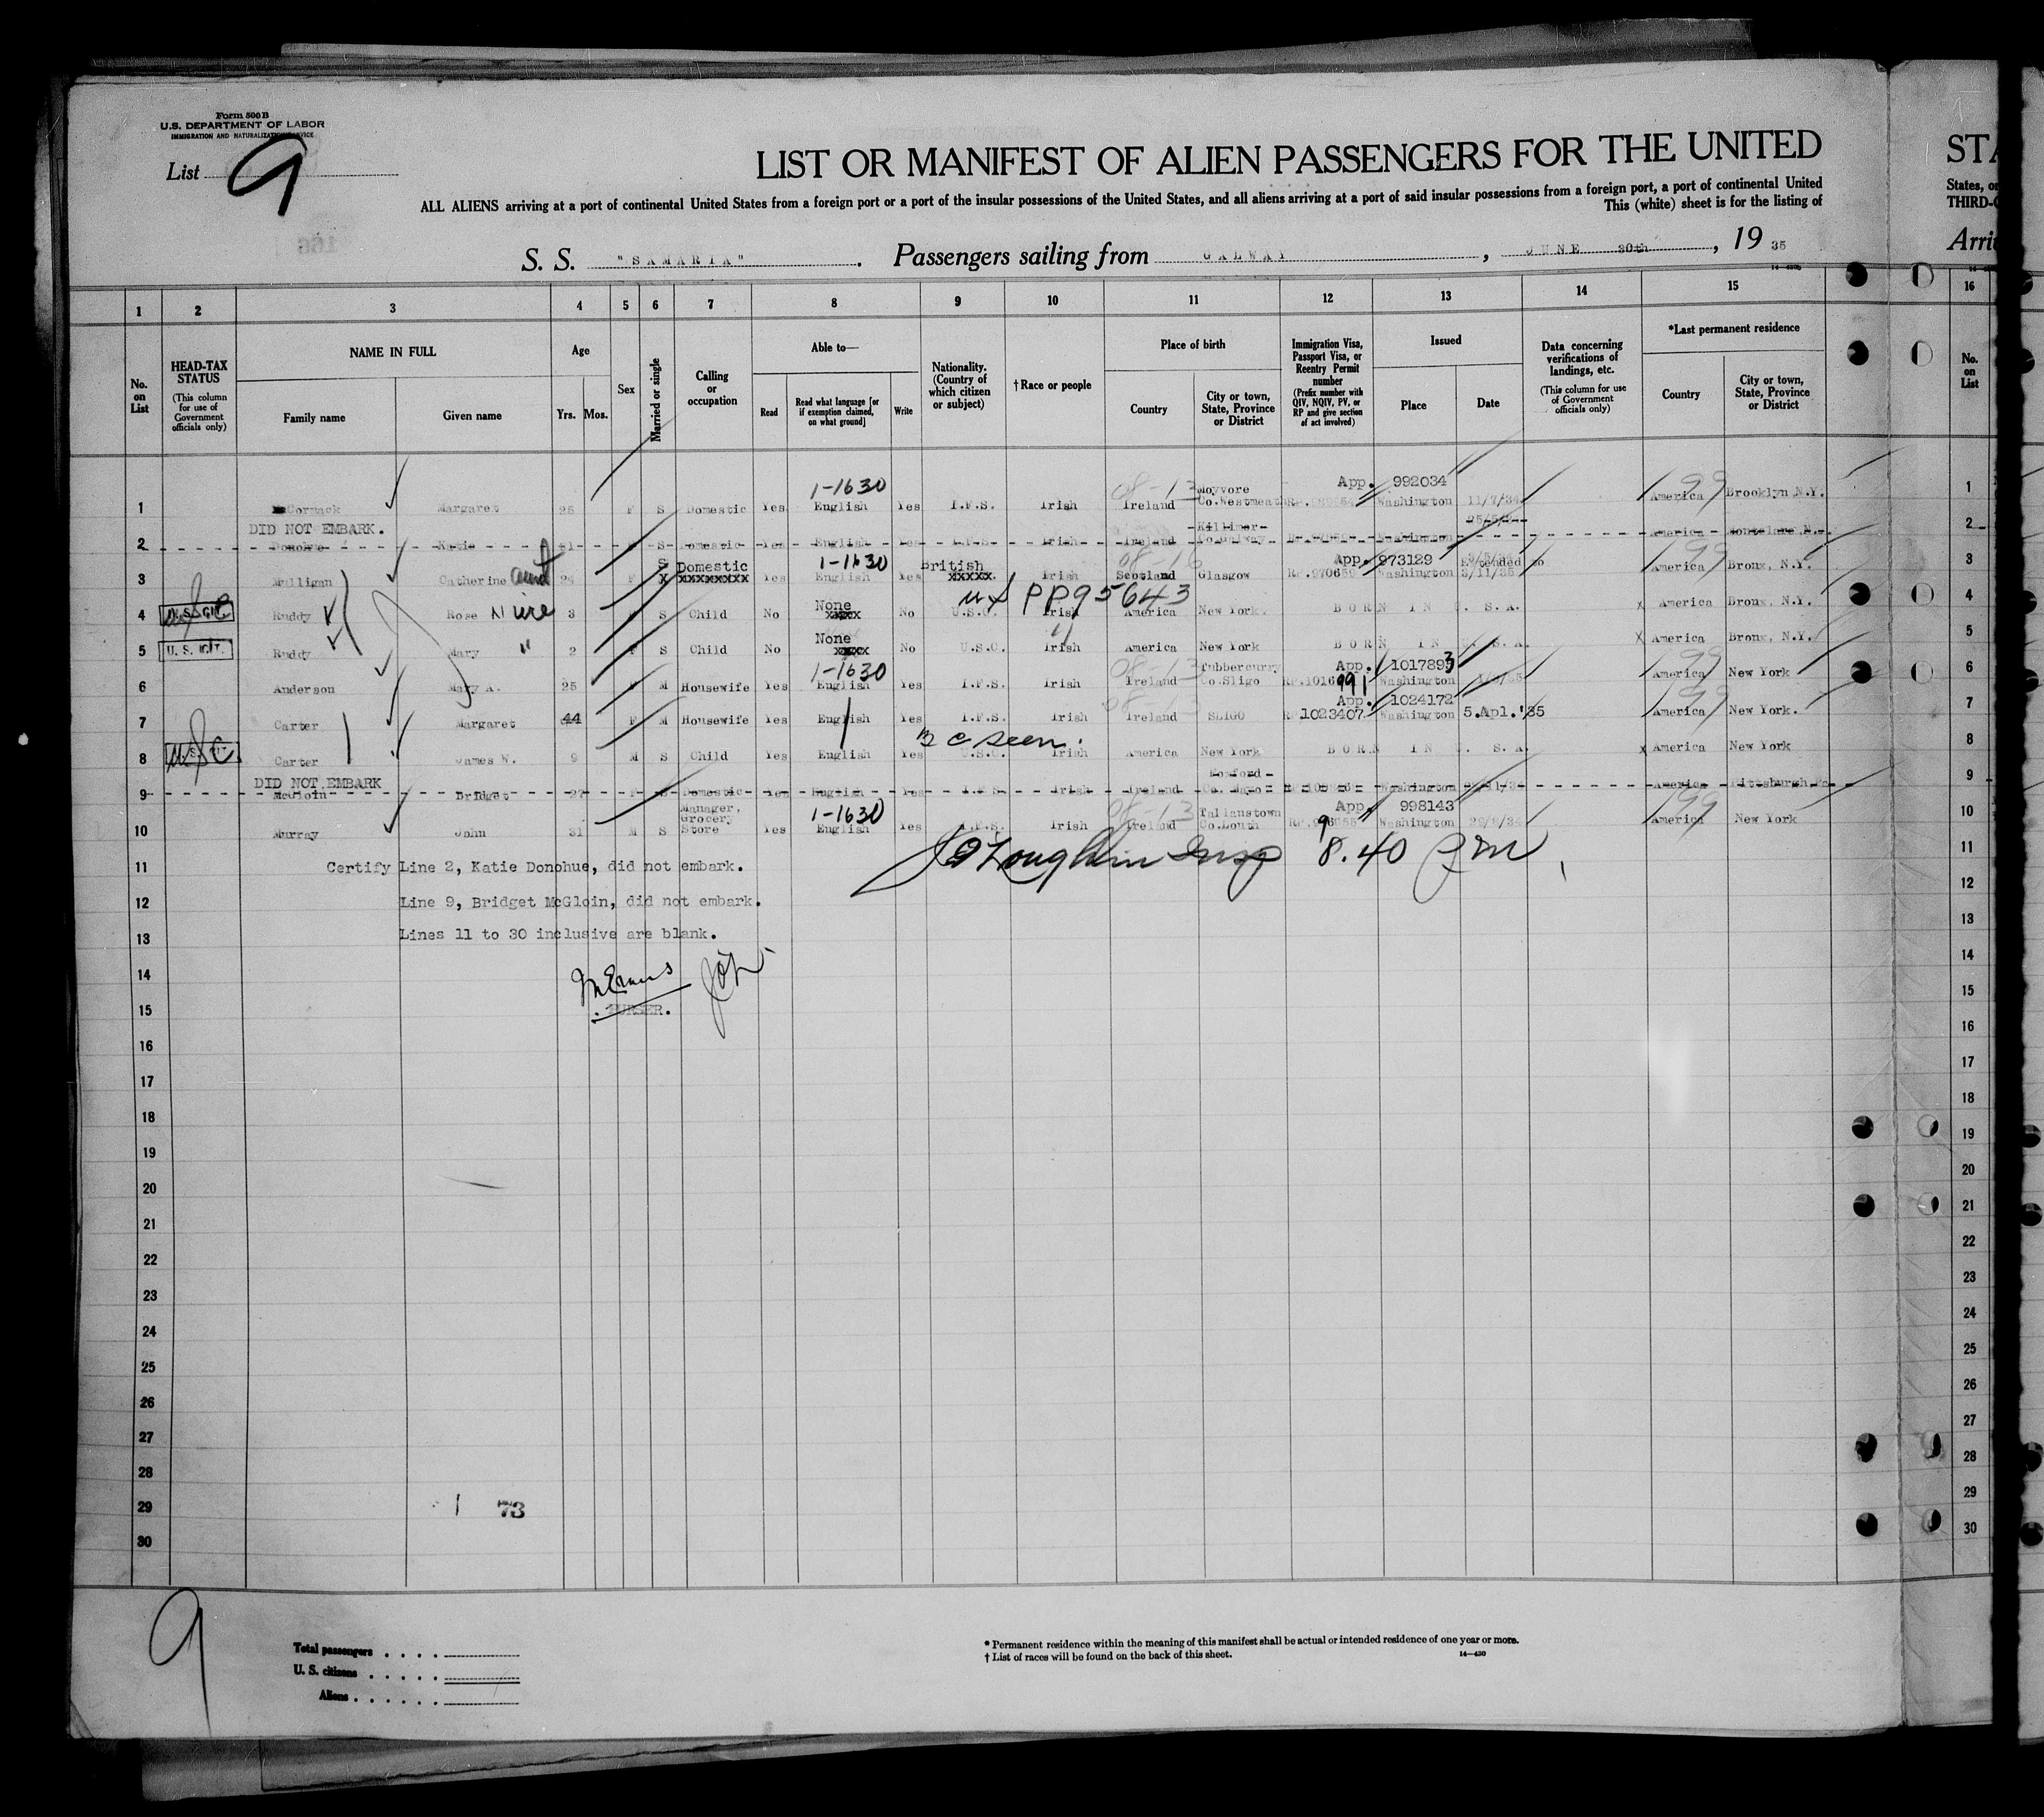 Form 500 B
U.S. DEPARTMENT OF LABOR
IMMIGRATION AND NATURALIZATION SERVICE
List 9
LIST OR MANIFEST OF ALIEN PASSENGERS FOR THE UNITED
STA
ALL ALIENS arriving at a port of continental United States from a foreign port or a port of the insular possessions of the United States, and all aliens arriving at a port of said insular possessions from a foreign port, a port of continental United
States, o
This (white) sheet is for the listing of
THIRD-C
166
S. S. "SAMARIA". Passengers sailing from GALWAY, JUNE 30th, 19 35
Arri
14-430
1 2 3 4 5 6 7 8 9 10 11 12 13 14 15 16
No. on List
HEAD-TAX STATUS (This column for use of Government officials only)
NAME IN FULL Family name Given name
Age Yrs. Mos.
Sex
Married or single
Calling or occupation
Able to— Read Read what language [or if exemption claimed, on what ground] Write
Nationality. (Country of which citizen or subject)
†Race or people
Place of birth Country City or town, State, Province or District
Immigration Visa, Passport Visa, or Reentry Permit number (Prefix number with QIV, NQIV, PV, or RP and give section of act involved)
Issued Place Date
Data concerning verifications of landings, etc. (This column for use of Government officials only)
*Last permanent residence Country City or town, State, Province or District
No. on List
1-1630 08-13 Moyvore App. 992034 199
1 McCormack Margaret 25 F S Domestic Yes English Yes I.F.S. Irish Ireland Co.Westmeath Washington 11/7/34 America Brooklyn N.Y. 1
DID NOT EMBARK. Killimer 25/5/
2 Donohue Katie S Domestic Yes English Yes I.F.S. Irish Ireland Co.Galway Washington America 2
S Domestic 1-1630 British 08-16 App. 973129 Extended to 199
3 Mulligan Catherine aunt 26 F X XXXXXXXXX Yes English Yes XXXXX. Irish Scotland Glasgow Washington 3/11/35 America Bronx, N.Y. 3
None US PP95643
4 U. S. CIT. USC Ruddy Rose Niece 3 S Child No XXXX No U.S.C. Irish America New York. BORN IN U. S. A. X America Bronx, N.Y. 4
None "
5 U. S. CIT. Ruddy Mary " 2 F S Child No XXXX No U.S.C. Irish America New York BORN IN U. S. A. X America Bronx, N.Y. 5
1-1630 08-13 Tubbercurry App. 1017893 199
6 Anderson Mary A. 25 F M Housewife Yes English Yes I.F.S. Irish Ireland Co.Sligo RP.1016991 Washington America New York 6
08-13 App. 1024172 199
7 Carter Margaret 44 F M Housewife Yes English Yes I.F.S. Irish Ireland SLIGO 1023407 Washington 5.Apl.'35 America New York. 7
BC seen.
8 USC Carter James W. 9 M S Child Yes English Yes U.S.C. Irish America New York BORN IN U. S. A. X America New York 8
DID NOT EMBARK Foxford
9 McGloin Bridget 27 F S Domestic Yes English Yes I.F.S. Irish Ireland Co. Mayo Washington America Pittsburgh Pa. 9
Manager, Grocery 1-1630 08-13 Tallanstown App. 998143 199
10 Murray John 31 M S Store Yes English Yes I.F.S. Irish Ireland Co.Louth Washington America New York 10
11 Certify Line 2, Katie Donohue, did not embark. J O'Loughlin Insp 8.40 PM 11
12 Line 9, Bridget McGloin, did not embark. 12
13 Lines 11 to 30 inclusive are blank. 13
14 14
15 PURSER. 15
16 16
17 17
18 18
19 19
20 20
21 21
22 22
23 23
24 24
25 25
26 26
27 27
28 28
29 1 73 29
30 30
9
Total passengers . . . .
U. S. citizens . . . . .
Aliens . . . . . .
* Permanent residence within the meaning of this manifest shall be actual or intended residence of one year or more.
† List of races will be found on the back of this sheet.
14-430